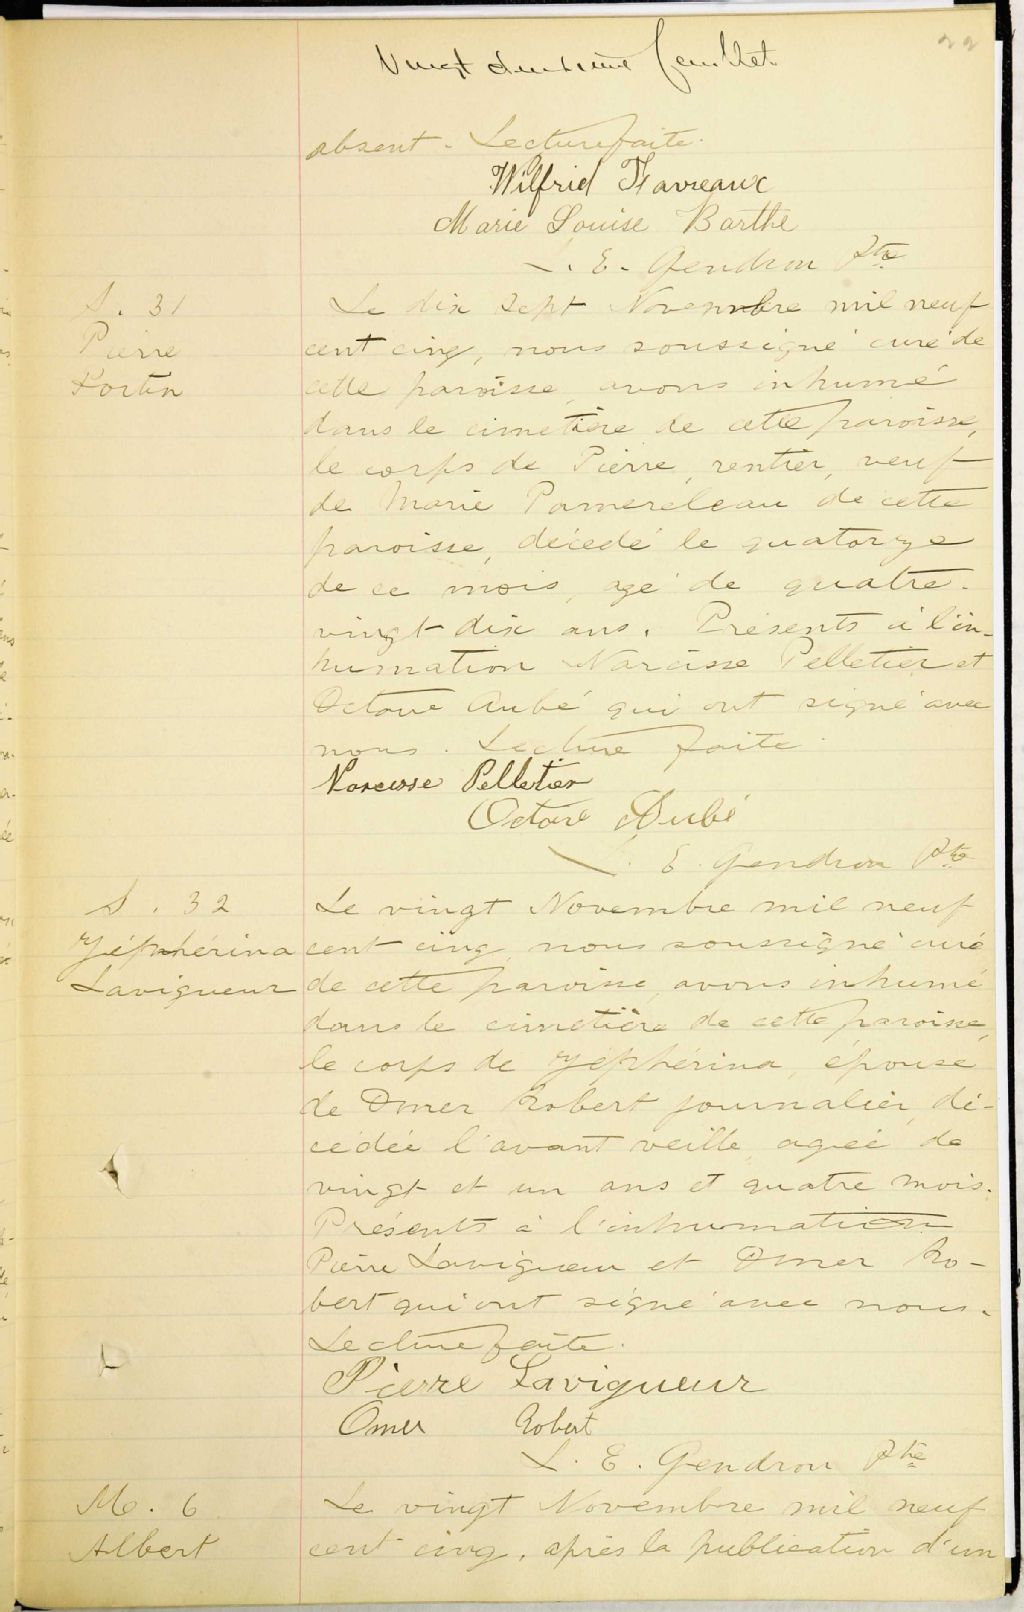 22
Vingt deuxième feuillet
absent. Lecture faite.
Wilfrid Favreaux
Marie Louise Barthe
L. E. Gendron Ptre
S. 31
Pierre
Fortin
Le dix sept Novembre mil neuf
cent cinq, nous soussigné curé de
cette paroisse, avons inhumé
dans le cimetière de cette paroisse,
le corps de Pierre, rentier, veuf
de Marie Pamerleau de cette
paroisse, décédé le quatorze
de ce mois, agé de quatre-
vingt dix ans. Présents à l'in-
humation Narcisse Pelletier et
Octave Aubé qui ont signé avec
nous. Lecture faite.
Narcisse Pelletier
Octave Aubé
L. E. Gendron Ptre
S. 32
Zéphérina
Lavigueur
Le vingt Novembre mil neuf
cent cinq, nous soussigné curé
de cette paroisse, avons inhumé
dans le cimetière de cette paroisse,
le corps de Zéphérina, épouse
de Omer Robert journalier, dé-
cédée l'avant veille, agée de
vingt et un ans et quatre mois.
Présents à l'inhumation
Pierre Lavigueur et Omer Ro-
bert qui ont signé avec nous.
Lecture faite.
Pierre Lavigueur
Omer Robert
L. E. Gendron Ptre
M. 6
Albert
Le vingt Novembre mil neuf
cent cinq, après la publication d'un